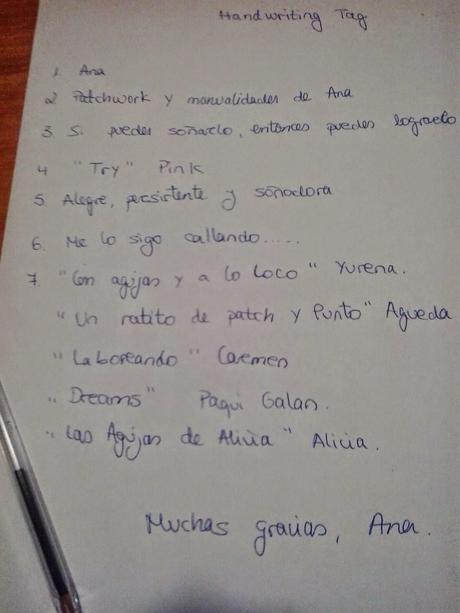 Handwriting Tag
1. Ana
2 Patchwork y manualidades de Ana
3. Si puedes soñarlo, entonces puedes lograrlo
4 "Try" Pink
5. Alegre, persistente y soñadora
6. Me lo sigo callando.....
7. "Con agujas y a lo loco" Yurena.
"Un ratito de patch y Punto" Agueda
"Laboreando" Carmen
"Dreams" Paqui Galan.
"Las Agujas de Alicia" Alicia.
Muchas gracias, Ana.